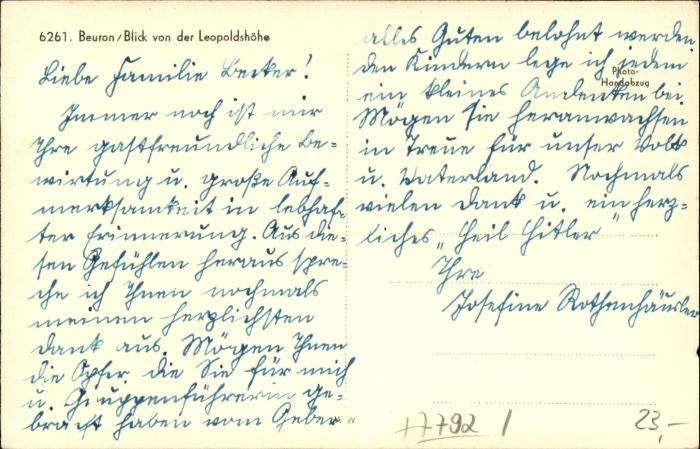 6261. Beuron/Blick von der Leopoldshöhe
Liebe Familie Becker!
Immer noch ist mir
Ihre gastfreundliche Be-
wirtung u. große Auf-
merksamkeit in lebhaf-
ter Erinnerung. Aus die-
sen Gefühlen heraus spre-
che ich Ihnen nochmals
meinen herzlichsten
Dank aus. Mögen Ihnen
die Opfer die Sie für mich
u. Gruppenführerin ge-
bracht haben vom Geber
alles Guten belohnt werden.
den Kindern lege ich jedem
ein kleines Andenken bei.
Mögen sie heranwachsen
in Treue für unser Volk
u. Vaterland. Nochmals
vielen Dank u. ein herz-
liches „Heil Hitler"
Ihre
Josefine Rothenhäusler
Photo-
Handabzug
17792 /
23,-